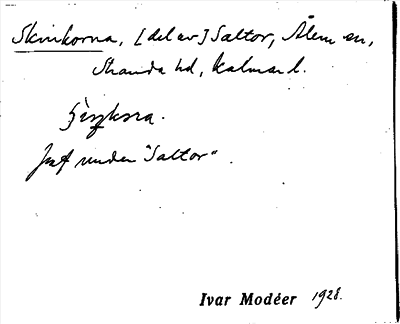 Skinkorna, [del av] Saltor, Ålem sn,
Stranda hd, Kalmar l.
Jmf under "Saltor".
Ivar Modéer 1928.